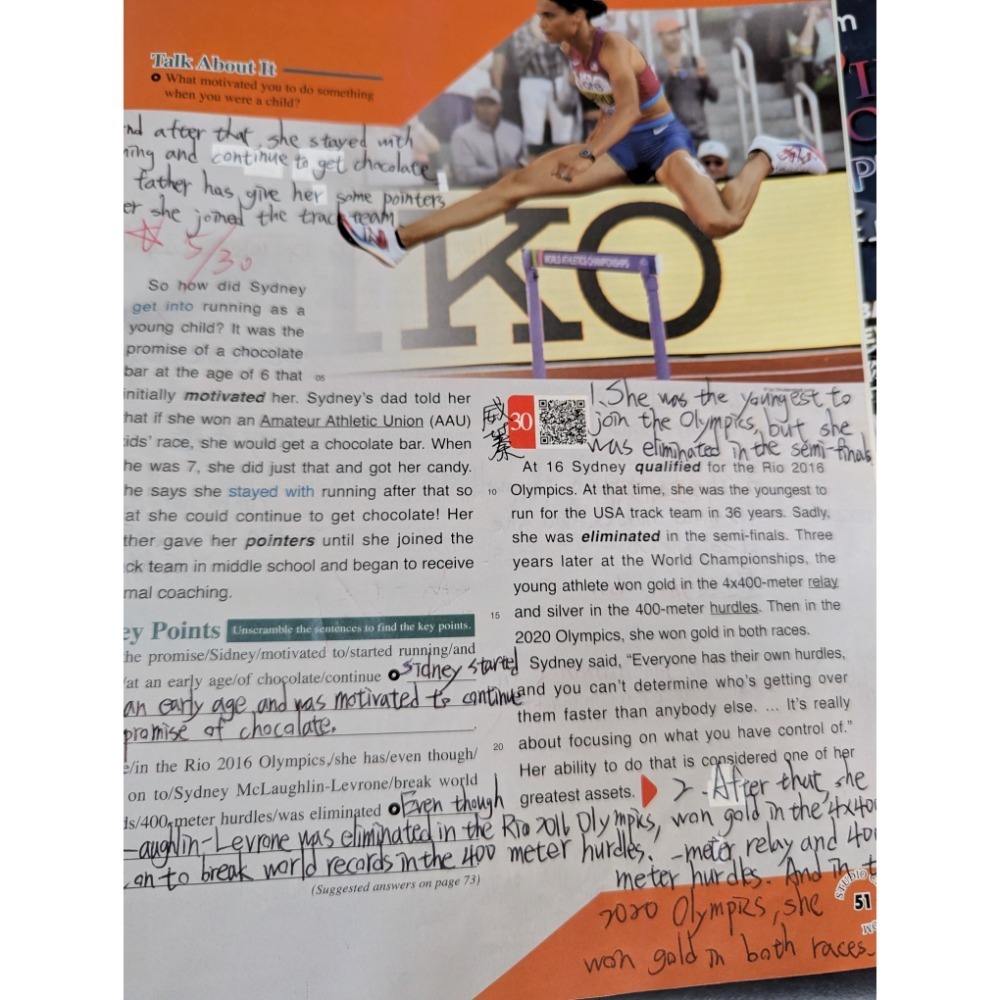 Talk About It
What motivated you to do something
when you were a child?
nd after that, she stayed with
ning and continue to get chocolate
father has give her some pointers
er she joined the track team
5/30
KO
WORLD ATHLETICS CHAMPIONSHIPS
So how did Sydney
get into running as a
young child? It was the
promise of a chocolate
bar at the age of 6 that 05
initially motivated her. Sydney's dad told her
hat if she won an Amateur Athletic Union (AAU)
ids' race, she would get a chocolate bar. When
he was 7, she did just that and got her candy.
he says she stayed with running after that so 10
at she could continue to get chocolate! Her
ther gave her pointers until she joined the
ck team in middle school and began to receive
mal coaching.
ey Points Unscramble the sentences to find the key points.
he promise/Sidney/motivated to/started running/and
/at an early age/of chocolate/continue Sidney started
an early age and was motivated to continue
promise of chocolate.
e/in the Rio 2016 Olympics,/she has/even though/
on to/Sydney McLaughlin-Levrone/break world
ds/400 meter hurdles/was eliminated Even though
-aughlin-Levrone was eliminated in the Rio 2016 Olympics,
on to break world records in the 400 meter hurdles.
(Suggested answers on page 73)
30
1. She was the youngest to
join the Olympics, but she
was eliminated in the semi-finals
At 16 Sydney qualified for the Rio 2016
Olympics. At that time, she was the youngest to
run for the USA track team in 36 years. Sadly,
she was eliminated in the semi-finals. Three
years later at the World Championships, the
young athlete won gold in the 4x400-meter relay
15 and silver in the 400-meter hurdles. Then in the
2020 Olympics, she won gold in both races.
Sydney said, "Everyone has their own hurdles,
and you can't determine who's getting over
them faster than anybody else. ... It's really
20 about focusing on what you have control of."
Her ability to do that is considered one of her
greatest assets.
2. After that, she
won gold in the 4x400
-meter relay and 400
meter hurdles. And in t
2020 Olympics, she
won gold in both races.
51